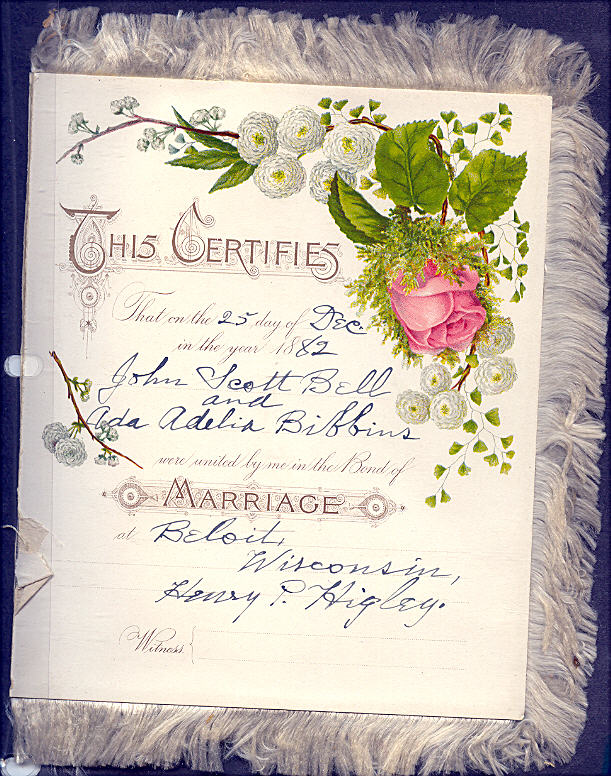 THIS CERTIFIES
That on the 25 day of Dec.
in the year 1882
John Scott Bell
and
Ada Adelia Bibbins
were united by me in the Bond of
MARRIAGE
at Beloit,
Wisconsin,
Henry P. Higley.
Witness